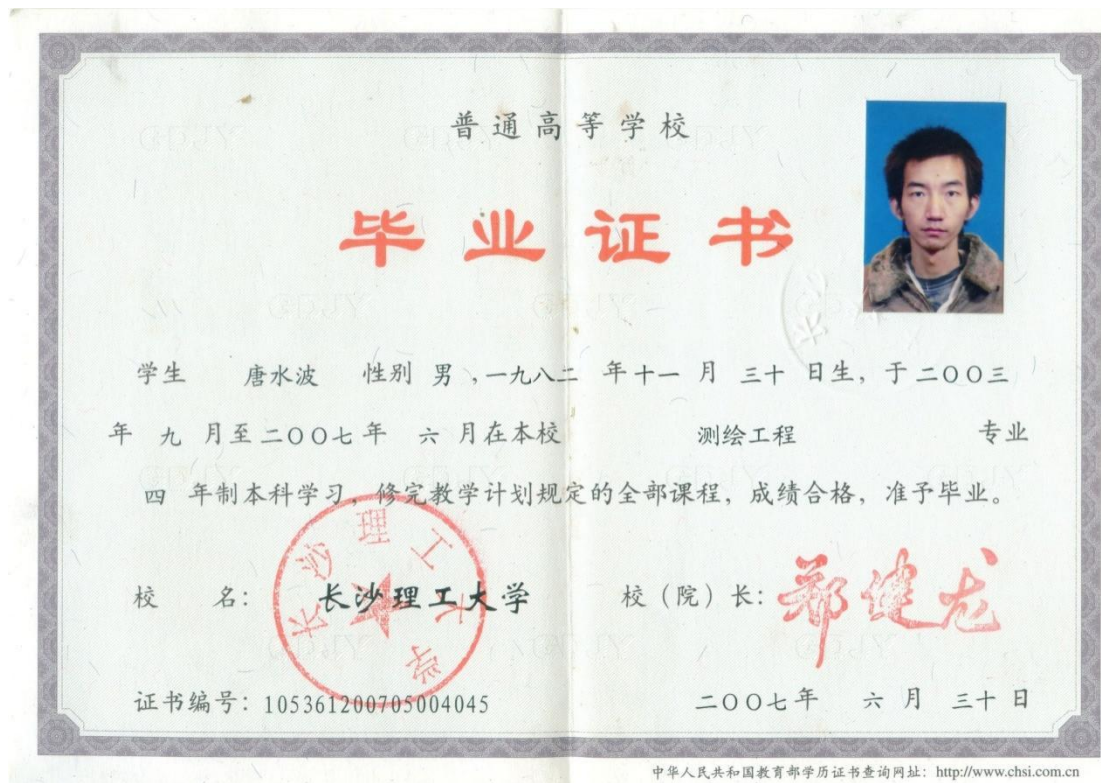 普通高等学校
毕业证书
学生 唐水波 性别 男 ,一九八二 年十一 月 三十 日生, 于二〇〇三
年 九 月至二〇〇七年 六 月在本校 测绘工程 专业
四 年制本科学习, 修完教学计划规定的全部课程, 成绩合格, 准予毕业。
校 名: 长沙理工大学 校（院）长: 郑健龙
长沙理工大学
证书编号: 105361200705004045 二〇〇七年 六 月 三十 日
中华人民共和国教育部学历证书查询网址: http://www.chsi.com.cn